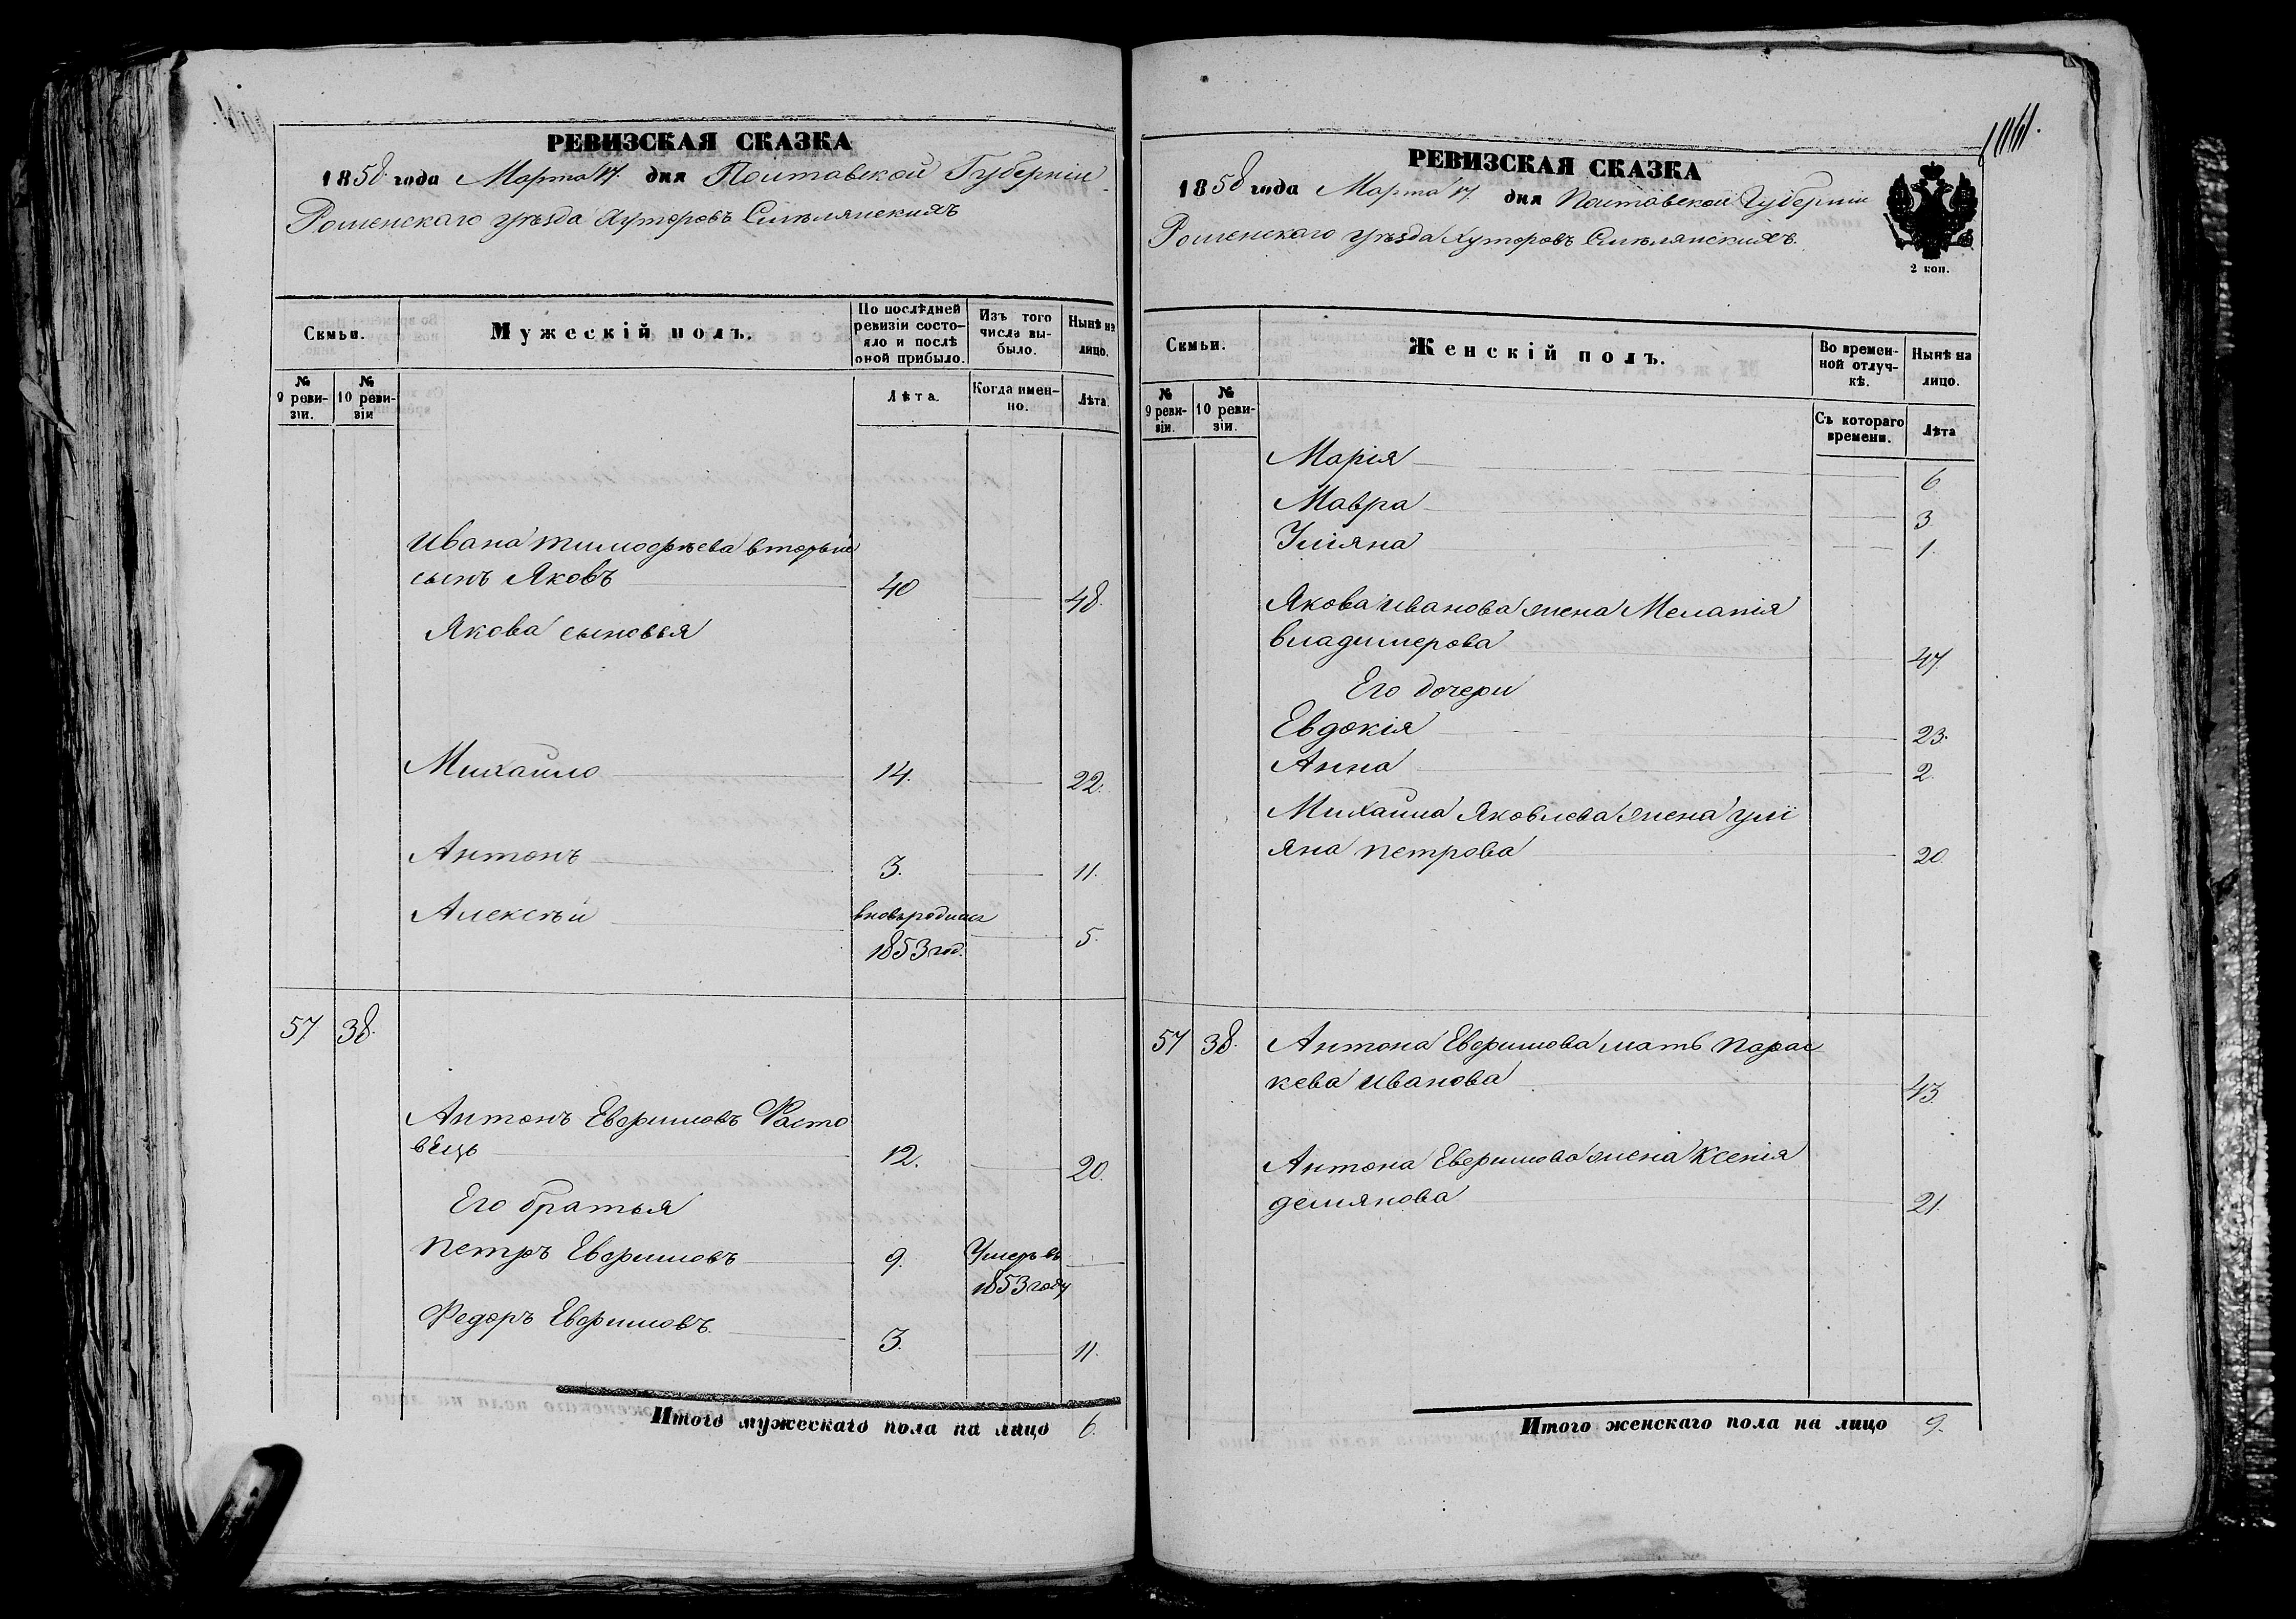 РЕВИЗСКАЯ СКАЗКА
1858 года Марта 17. дня Полтавской Губерніи
Роменскаго уѣзда Хуторовъ Смѣлянскихъ
Семьи.
Мужескій полъ.
По послѣдней ревизіи состояло и послѣ оной прибыло.
Изъ того числа выбыло.
Нынѣ на лицо.
№ 9 ревизіи.
№ 10 ревизіи
Лѣта.
Когда именно.
Лѣта.
Ивана Тимофѣева вторый
сынъ Яковъ 40 48.
Якова сыновья
Михайло 14. 22.
Антонъ 3. 11.
Алексѣй вновьродился
1853 год. 5.
57. 38.
Антонъ Евфимовъ Росто
вецъ 12. 20.
Его братья
Петръ Евфимовъ 9. Умеръ въ
1853 году
Федоръ Евфимовъ. 3. 11.
Итого мужескаго пола на лицо 6.
РЕВИЗСКАЯ СКАЗКА
1858 года Марта 17. дня Полтавской Губерніи
Роменскаго уѣзда Хуторовъ Смѣлянскихъ.
2 коп.
Семьи.
Женскій полъ.
Во временной отлучкѣ.
Нынѣ на лицо.
№ 9 ревизіи.
№ 10 ревизіи.
Съ котораго времени.
Лѣта
Марія 6
Мавра 3.
Уліяна 1.
Якова Иванова жена Меланія
Владимерова 47.
Его дочери
Евдокія 23.
Анна 2.
Михайла Яковлева жена Улі
яна Петрова 20.
57 38. Антона Евфимова мать Парас
кева Иванова 43.
Антона Евфимова жена Ксенія
Демянова 21.
Итого женскаго пола на лицо 9.